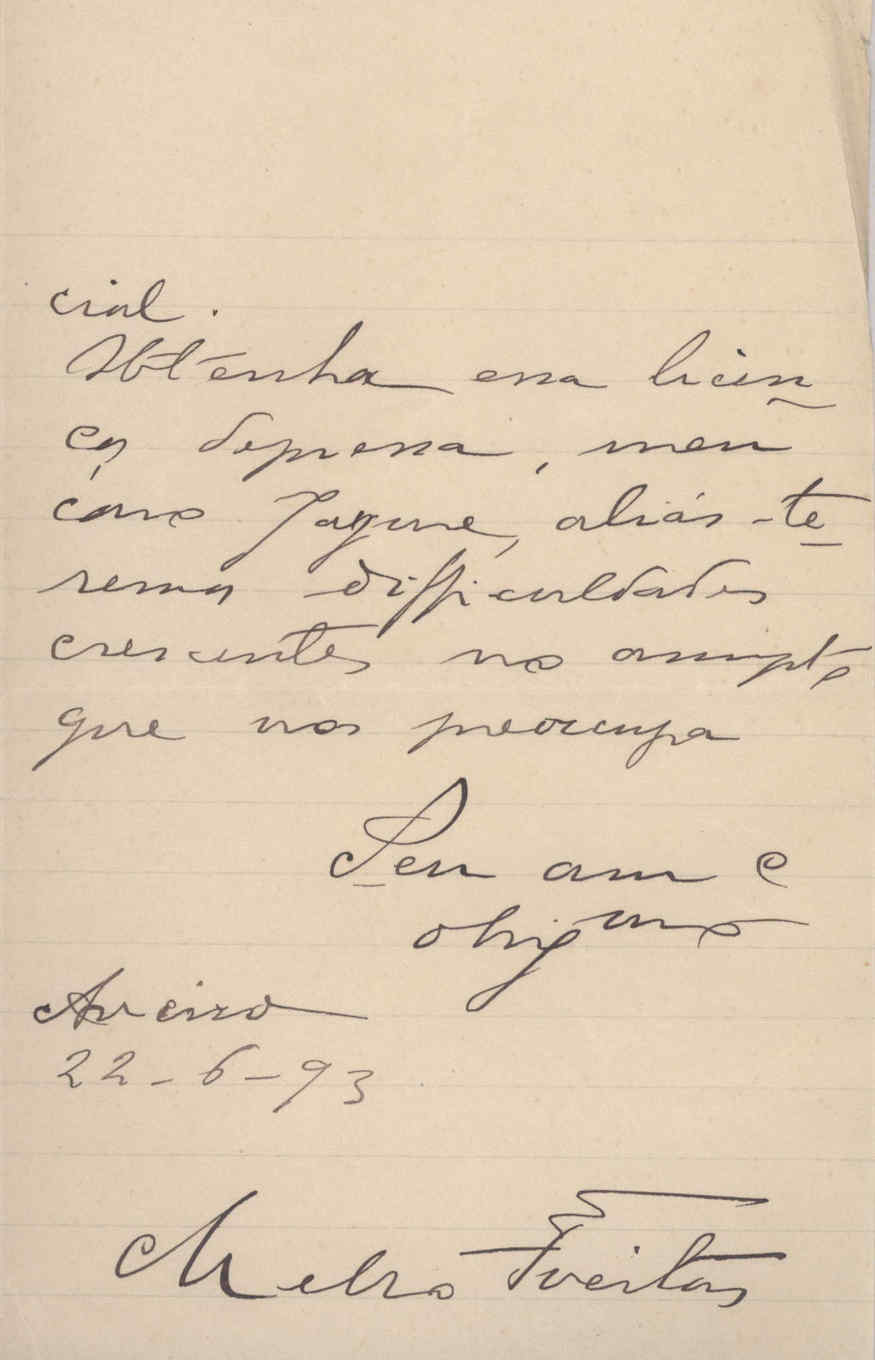 cial.
Obtenha essa licen
ça depressa, meu
caro Jayme, aliás te
remos difficuldades
crescentes no assumpto
que nos preocupa
Seu am e
obrigmo
Aveiro
22-6-93
Mello Freitas